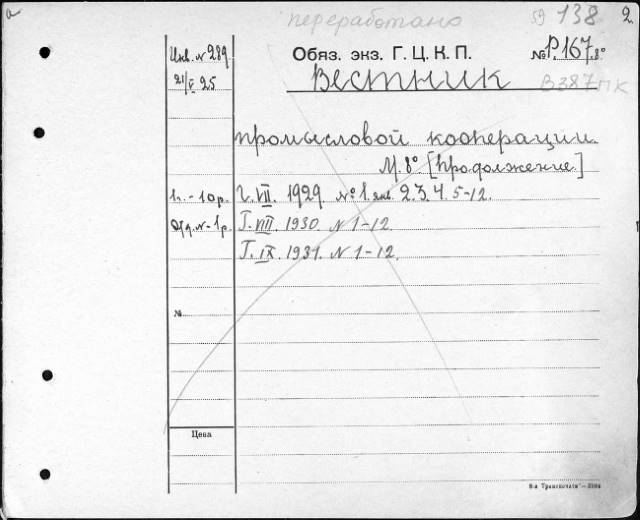 a
переработано
59 138 2
Инв. № 289
21/V 25
Обяз. экз. Г. Ц. К. П.
№ Р.167.8°
Вестник
В387ПК
промысловой кооперации.
М. 8° [Продолжение]
1г. - 10р. Г. VII. 1929. № 1. янв. 2.3.4.5-12.
Отд. № - 1р. Г. VIII. 1930. N 1-12.
Г. IX. 1931. N 1-12.
№
Цена